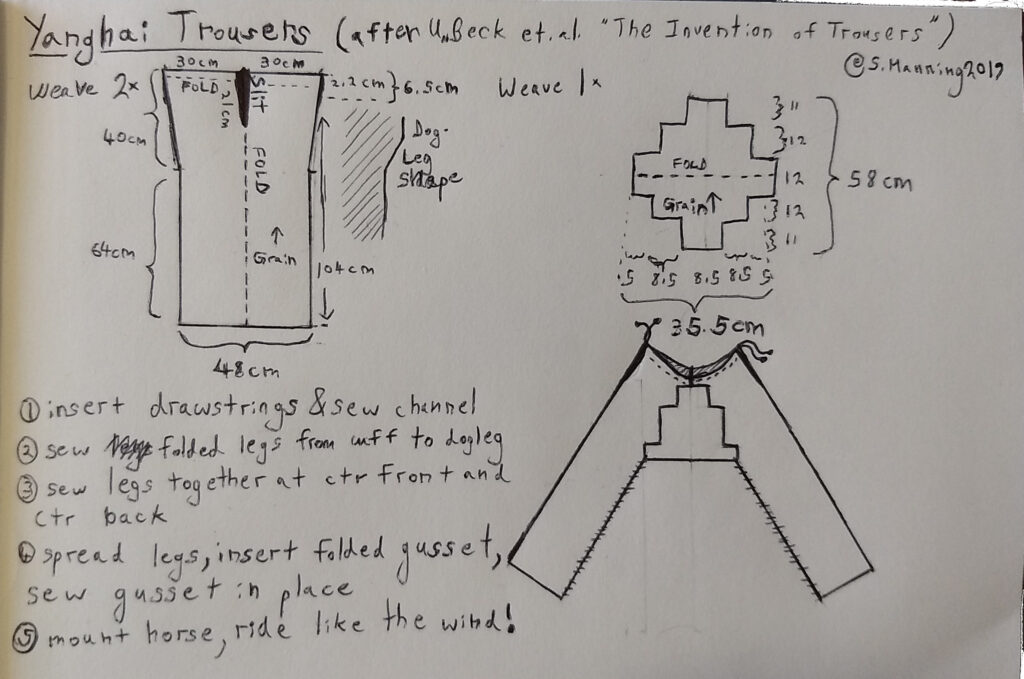 Yanghai Trousers (after U. Beck et. al. "The Invention of Trousers")
@S. Manning 2019
30cm 30cm
Weave 2x
FOLD
21cm
Slit
2.2cm
6.5cm
40cm
FOLD
Dog-
Leg
shape
64cm
↑
Grain
104cm
48cm
Weave 1x
11
12
12
12
11
58cm
FOLD
Grain ↑
.5 8.5 8.5 8.5 5
35.5cm
① insert drawstrings & sew channel
② sew folded legs from cuff to dogleg
③ sew legs together at ctr front and
ctr back
④ spread legs, insert folded gusset,
sew gusset in place
⑤ mount horse, ride like the wind!